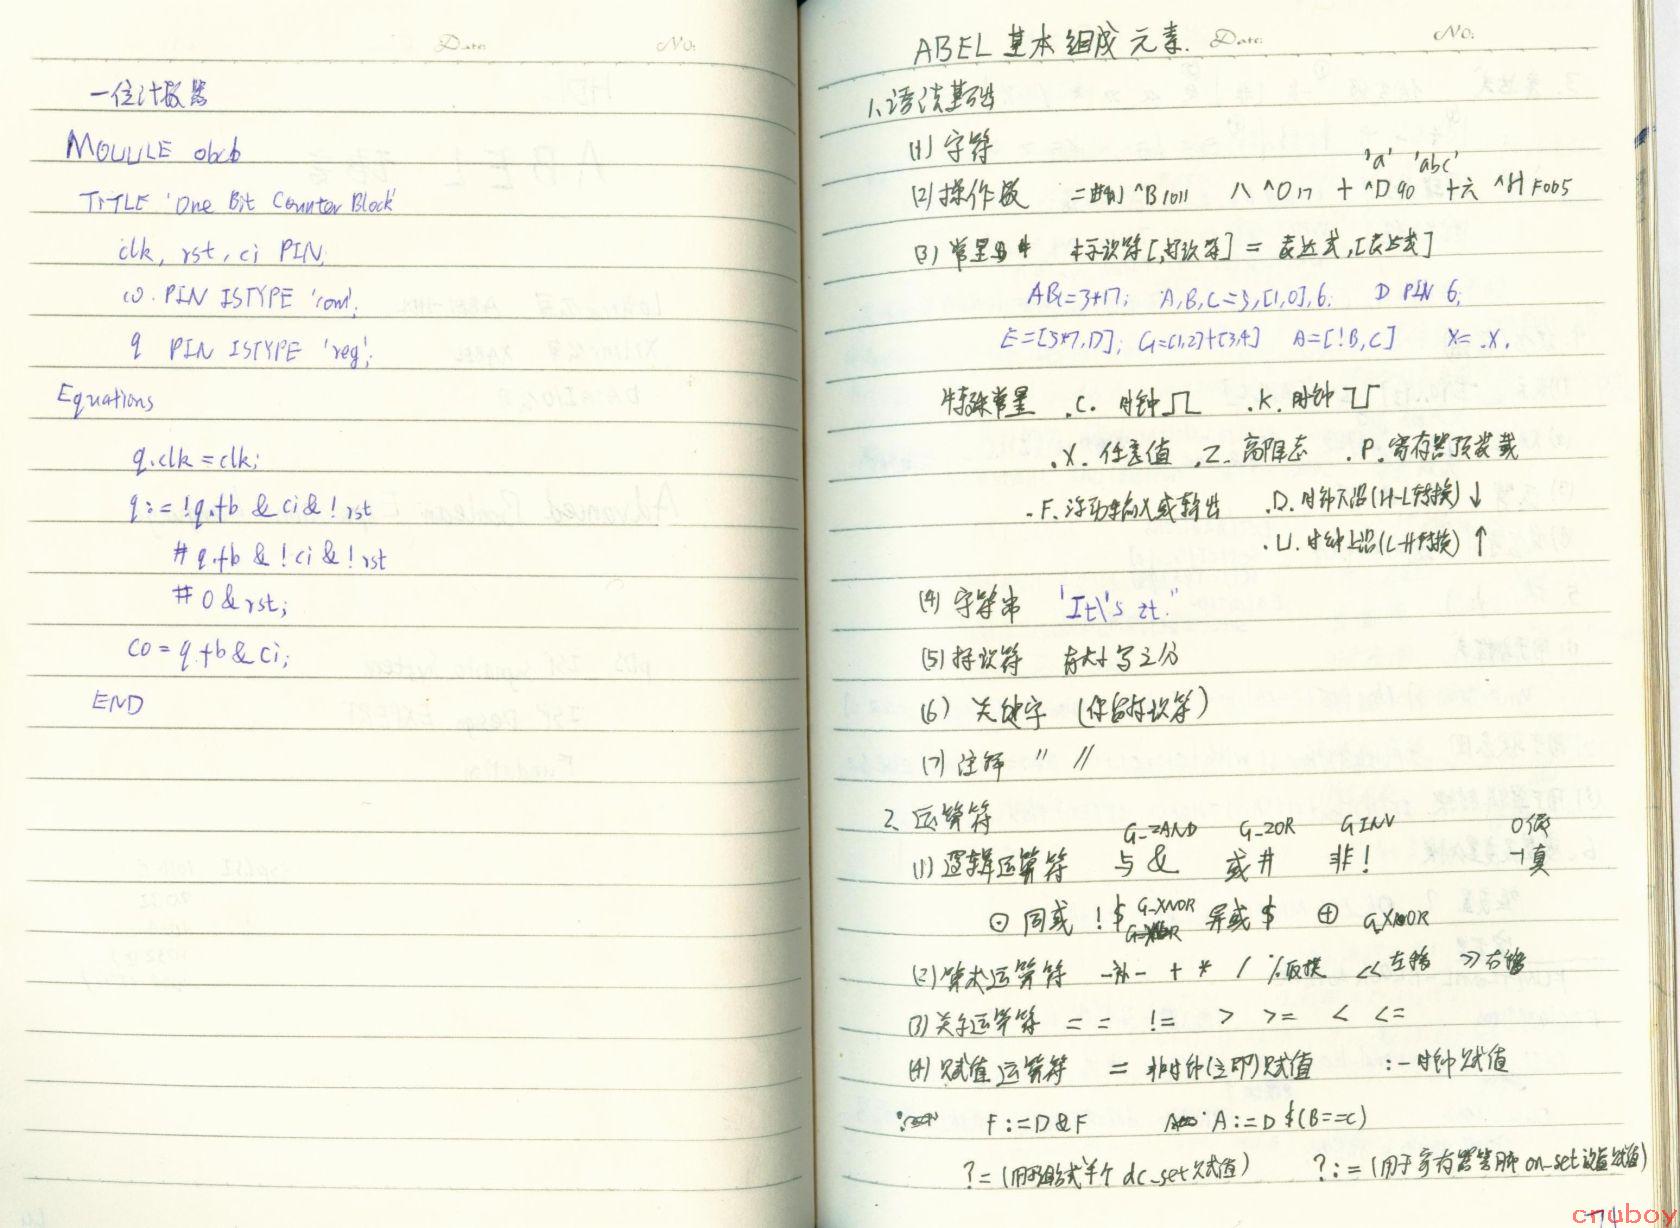 Date: No:
一位计数器
MODULE obcb
TITLE 'One Bit Counter Block'
clk, rst, ci PIN;
co PIN ISTYPE 'com';
q PIN ISTYPE 'reg';
Equations
q.clk = clk;
q := !q.fb & ci & !rst
# q.fb & !ci & !rst
# 0 & rst;
co = q.fb & ci;
END
ABEL 基本组成元素. Date: No:
1、语法基础
(1) 字符
'a' 'abc'
(2) 操作数 二 ^B1011 八 ^O17 十 ^D90 十六 ^HF005
(3) 常量 标识符[,标识符] = 表达式,[表达式]
ABC=3*17; A,B,C=3,[1,0],6; D PIN 6;
E=[3*7,D]; G=[1,2]+[3,4] A=[!B,C] X= .X.
特殊常量 .C. 时钟 .K. 时钟
.X. 任意值 .Z. 高阻态 .P. 寄存器预装载
.F. 浮动输入或输出 .D. 时钟下沿(H-L转换) ↓
.U. 时钟上沿(L-H转换) ↑
(4) 字符串 'It\'s zt.''
(5) 标识符 有大小写之分
(6) 关键字 (保留标识符)
(7) 注释 " //
2、运算符
G_2AND G_2OR GINV 0假
(1) 逻辑运算符 与 & 或 # 非 ! -1真
⊙ 同或 !$ G_XNOR 异或 $ ⊕ GXOR
(2) 算术运算符 -补 - + * / %取模 << 左移 >> 右移
(3) 关系运算符 == != > >= < <=
(4) 赋值运算符 = 非时钟(立即)赋值 := 时钟赋值
F:=D&F A:=D$(B==C)
?= (用于组合式 dc_set赋值) ?:= (用于寄存器 on_set 赋值)
74
cnuboy